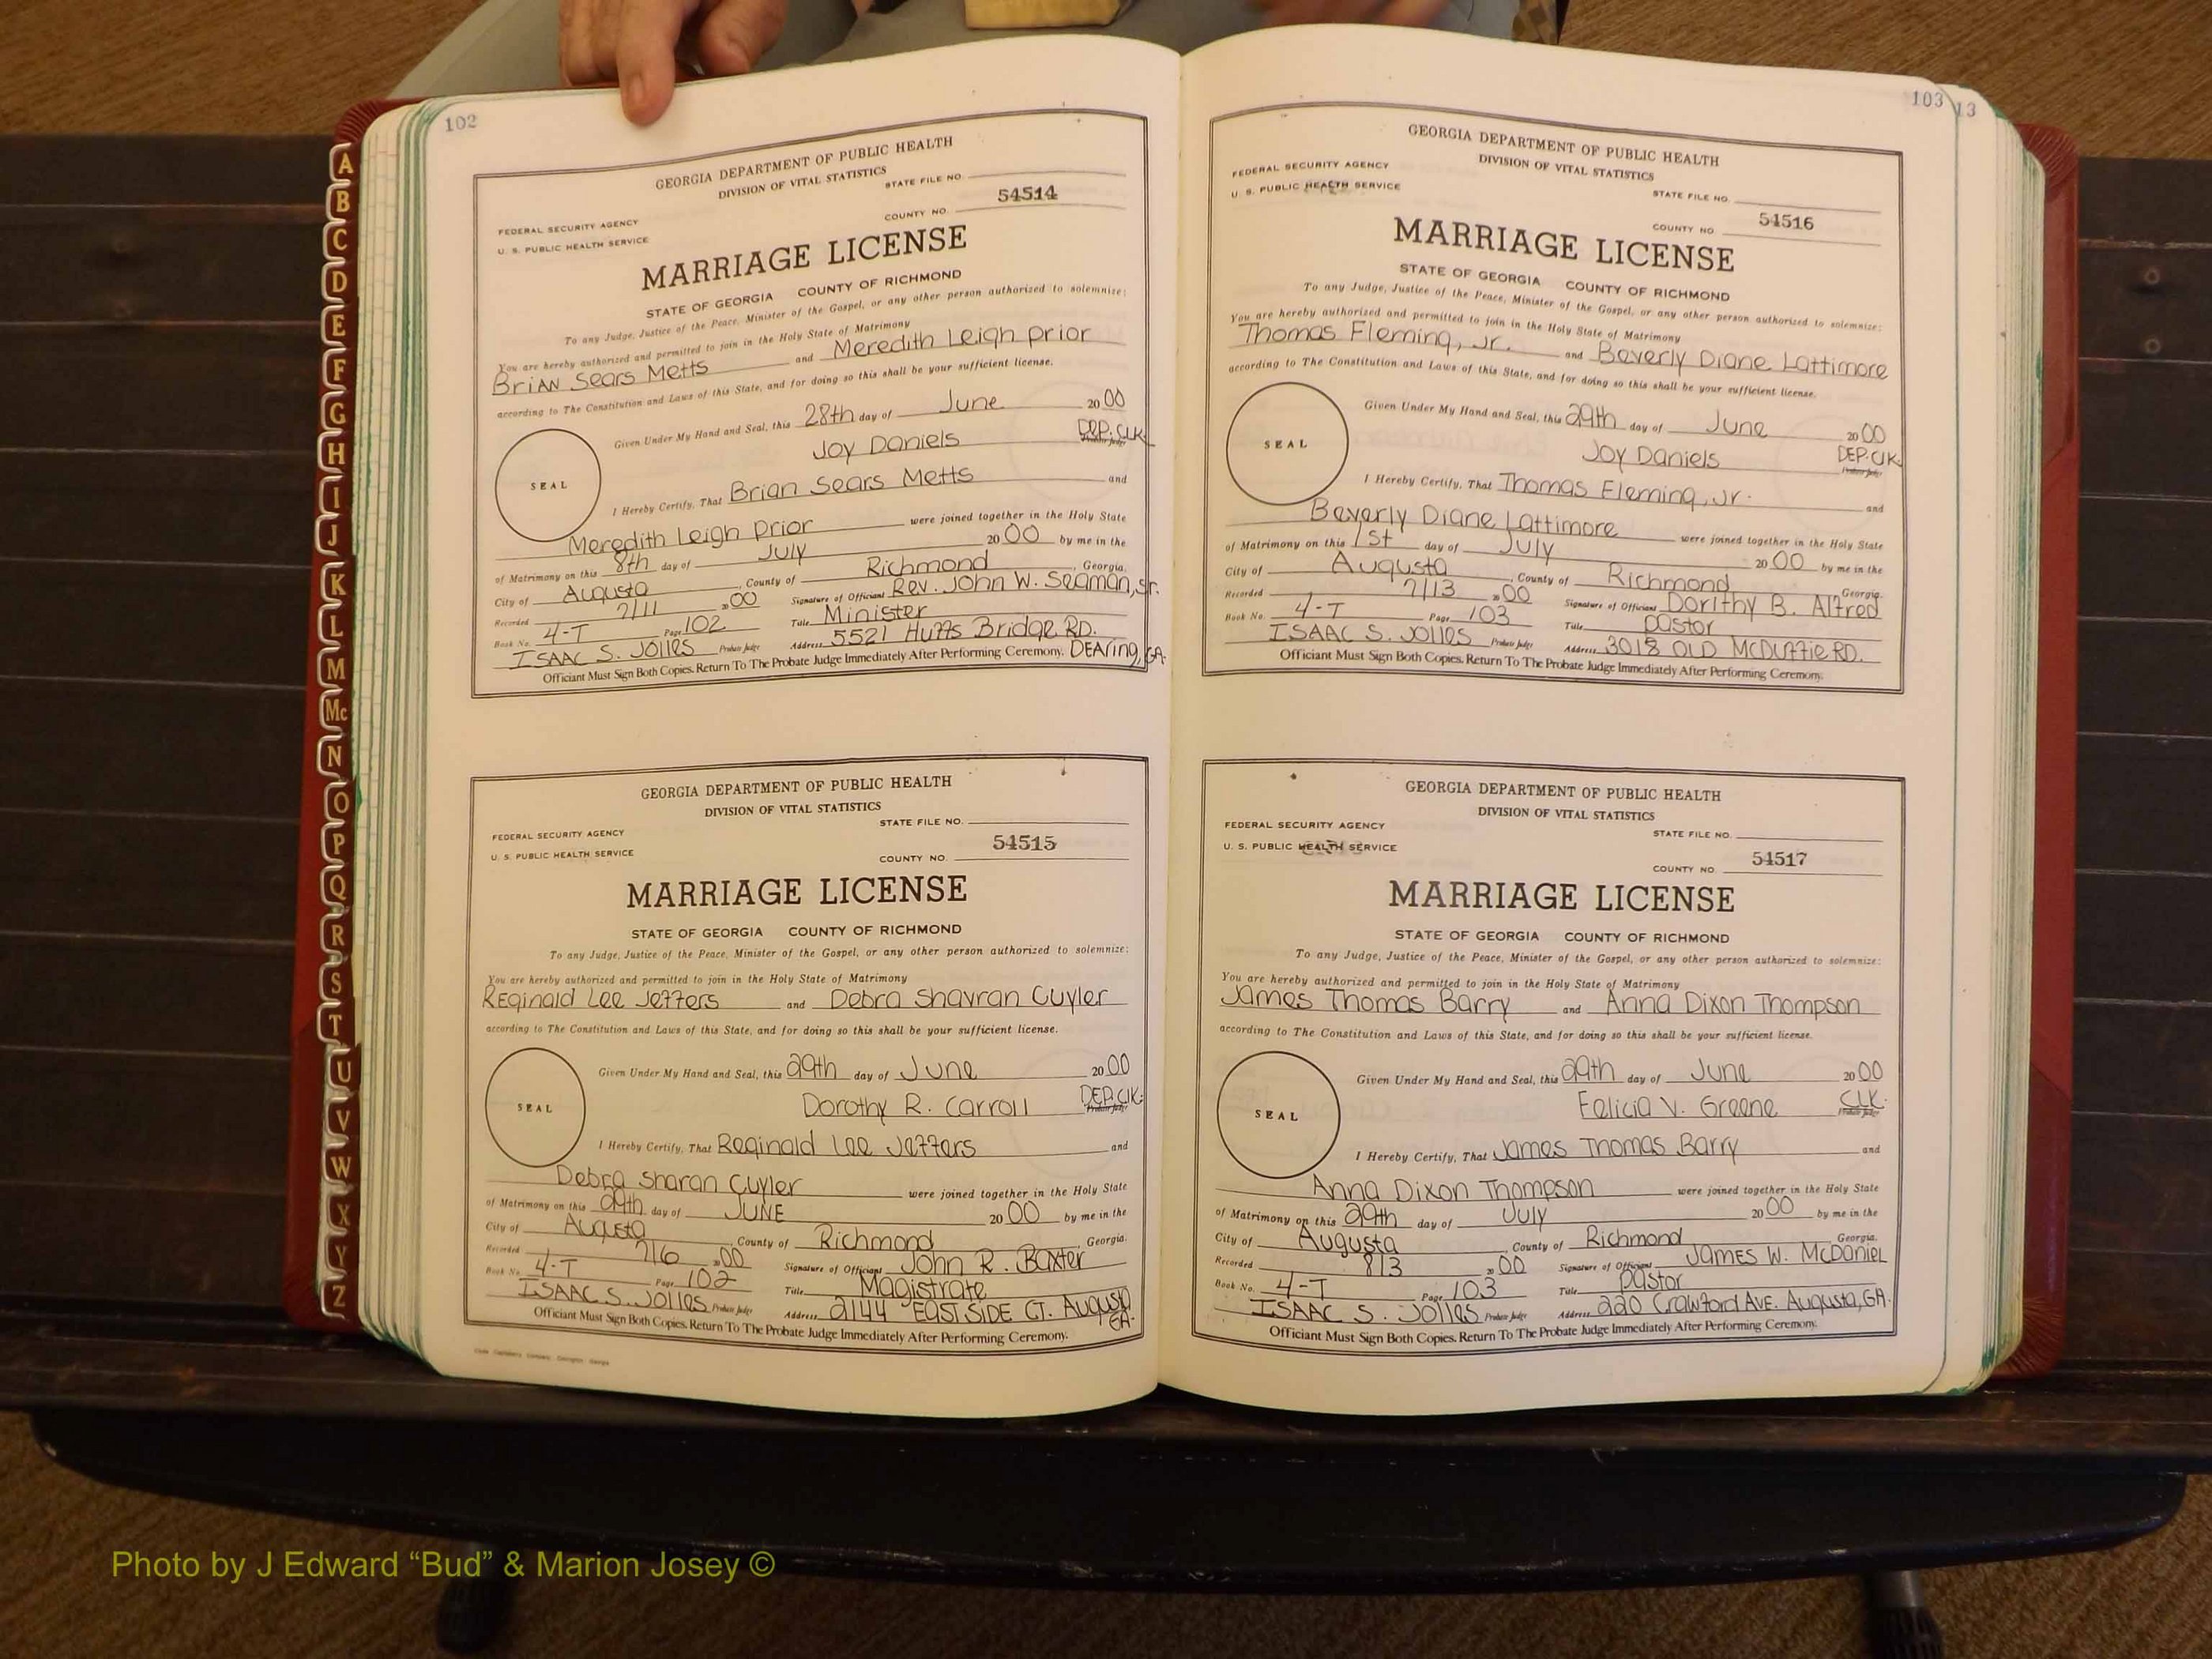 102
GEORGIA DEPARTMENT OF PUBLIC HEALTH
DIVISION OF VITAL STATISTICS
STATE FILE NO.
54514
COUNTY NO.
FEDERAL SECURITY AGENCY
U. S. PUBLIC HEALTH SERVICE
MARRIAGE LICENSE
STATE OF GEORGIA COUNTY OF RICHMOND
To any Judge, Justice of the Peace, Minister of the Gospel, or any other person authorized to solemnize:
You are hereby authorized and permitted to join in the Holy State of Matrimony
Brian Sears Metts and Meredith Leigh Prior
according to The Constitution and Laws of this State, and for doing so this shall be your sufficient license.
Given Under My Hand and Seal, this 28th day of June 20 00
Joy Daniels DEP. CLK.
Probate Judge
SEAL
I Hereby Certify, That Brian Sears Metts and
Meredith Leigh Prior were joined together in the Holy State
of Matrimony on this 8th day of July 20 00 by me in the
City of Augusta, County of Richmond, Georgia.
Recorded 7/11 20 00 Signature of Officiant Rev. John W. Seaman, Sr.
Book No. 4-T Page 102 Title Minister
ISAAC S. Jolles Probate Judge Address 5521 Huffs Bridge RD.
DEAring, GA.
Officiant Must Sign Both Copies. Return To The Probate Judge Immediately After Performing Ceremony.
GEORGIA DEPARTMENT OF PUBLIC HEALTH
DIVISION OF VITAL STATISTICS
STATE FILE NO.
FEDERAL SECURITY AGENCY
54515
U. S. PUBLIC HEALTH SERVICE
COUNTY NO.
MARRIAGE LICENSE
STATE OF GEORGIA COUNTY OF RICHMOND
To any Judge, Justice of the Peace, Minister of the Gospel, or any other person authorized to solemnize:
You are hereby authorized and permitted to join in the Holy State of Matrimony
Reginald Lee Jeffers and Debra Shavran Cuyler
according to The Constitution and Laws of this State, and for doing so this shall be your sufficient license.
Given Under My Hand and Seal, this 29th day of June 20 00
Dorothy R. Carroll DEP. CLK.
Probate Judge
SEAL
I Hereby Certify, That Reginald Lee Jeffers and
Debra Sharan Cuyler were joined together in the Holy State
of Matrimony on this 29th day of JUNE 20 00 by me in the
City of Augusta, County of Richmond, Georgia.
Recorded 7/6 20 00 Signature of Officiant John R. Baxter
Book No. 4-T Page 102 Title Magistrate
ISAAC S. Jolles Probate Judge Address 2144 EAST SIDE CT. Augusta
GA.
Officiant Must Sign Both Copies. Return To The Probate Judge Immediately After Performing Ceremony.
103
13
GEORGIA DEPARTMENT OF PUBLIC HEALTH
DIVISION OF VITAL STATISTICS
FEDERAL SECURITY AGENCY
U. S. PUBLIC HEALTH SERVICE
STATE FILE NO.
54516
COUNTY NO.
MARRIAGE LICENSE
STATE OF GEORGIA COUNTY OF RICHMOND
To any Judge, Justice of the Peace, Minister of the Gospel, or any other person authorized to solemnize:
You are hereby authorized and permitted to join in the Holy State of Matrimony
Thomas Fleming, Jr. and Beverly Diane Lattimore
according to The Constitution and Laws of this State, and for doing so this shall be your sufficient license.
Given Under My Hand and Seal, this 29th day of June 20 00
Joy Daniels DEP. CLK.
Probate Judge
SEAL
I Hereby Certify, That Thomas Fleming, Jr. and
Beverly Diane Lattimore were joined together in the Holy State
of Matrimony on this 1st day of July 20 00 by me in the
City of Augusta, County of Richmond, Georgia.
Recorded 7/13 20 00 Signature of Officiant Dorithy B. Alfred
Book No. 4-T Page 103 Title pastor
ISAAC S. Jolles Probate Judge Address 3018 OLD McDuffie RD.
Officiant Must Sign Both Copies. Return To The Probate Judge Immediately After Performing Ceremony.
GEORGIA DEPARTMENT OF PUBLIC HEALTH
DIVISION OF VITAL STATISTICS
FEDERAL SECURITY AGENCY
STATE FILE NO.
U. S. PUBLIC HEALTH SERVICE
54517
COUNTY NO.
MARRIAGE LICENSE
STATE OF GEORGIA COUNTY OF RICHMOND
To any Judge, Justice of the Peace, Minister of the Gospel, or any other person authorized to solemnize:
You are hereby authorized and permitted to join in the Holy State of Matrimony
James Thomas Barry and Anna Dixon Thompson
according to The Constitution and Laws of this State, and for doing so this shall be your sufficient license.
Given Under My Hand and Seal, this 29th day of June 20 00
Felicia V. Greene CLK.
Probate Judge
SEAL
I Hereby Certify, That James Thomas Barry and
Anna Dixon Thompson were joined together in the Holy State
of Matrimony on this 29th day of July 20 00 by me in the
City of Augusta, County of Richmond, Georgia.
Recorded 8/3 20 00 Signature of Officiant James W. McDaniel
Book No. 4-T Page 103 Title pastor
ISAAC S. Jolles Probate Judge Address 220 Crawford AVE. Augusta, GA.
Officiant Must Sign Both Copies. Return To The Probate Judge Immediately After Performing Ceremony.
A
B
C
D
E
F
G
H
I
J
K
L
M
Mc
N
O
P
Q
R
S
T
U
V
W
X
Y
Z
Photo by J Edward “Bud” & Marion Josey ©